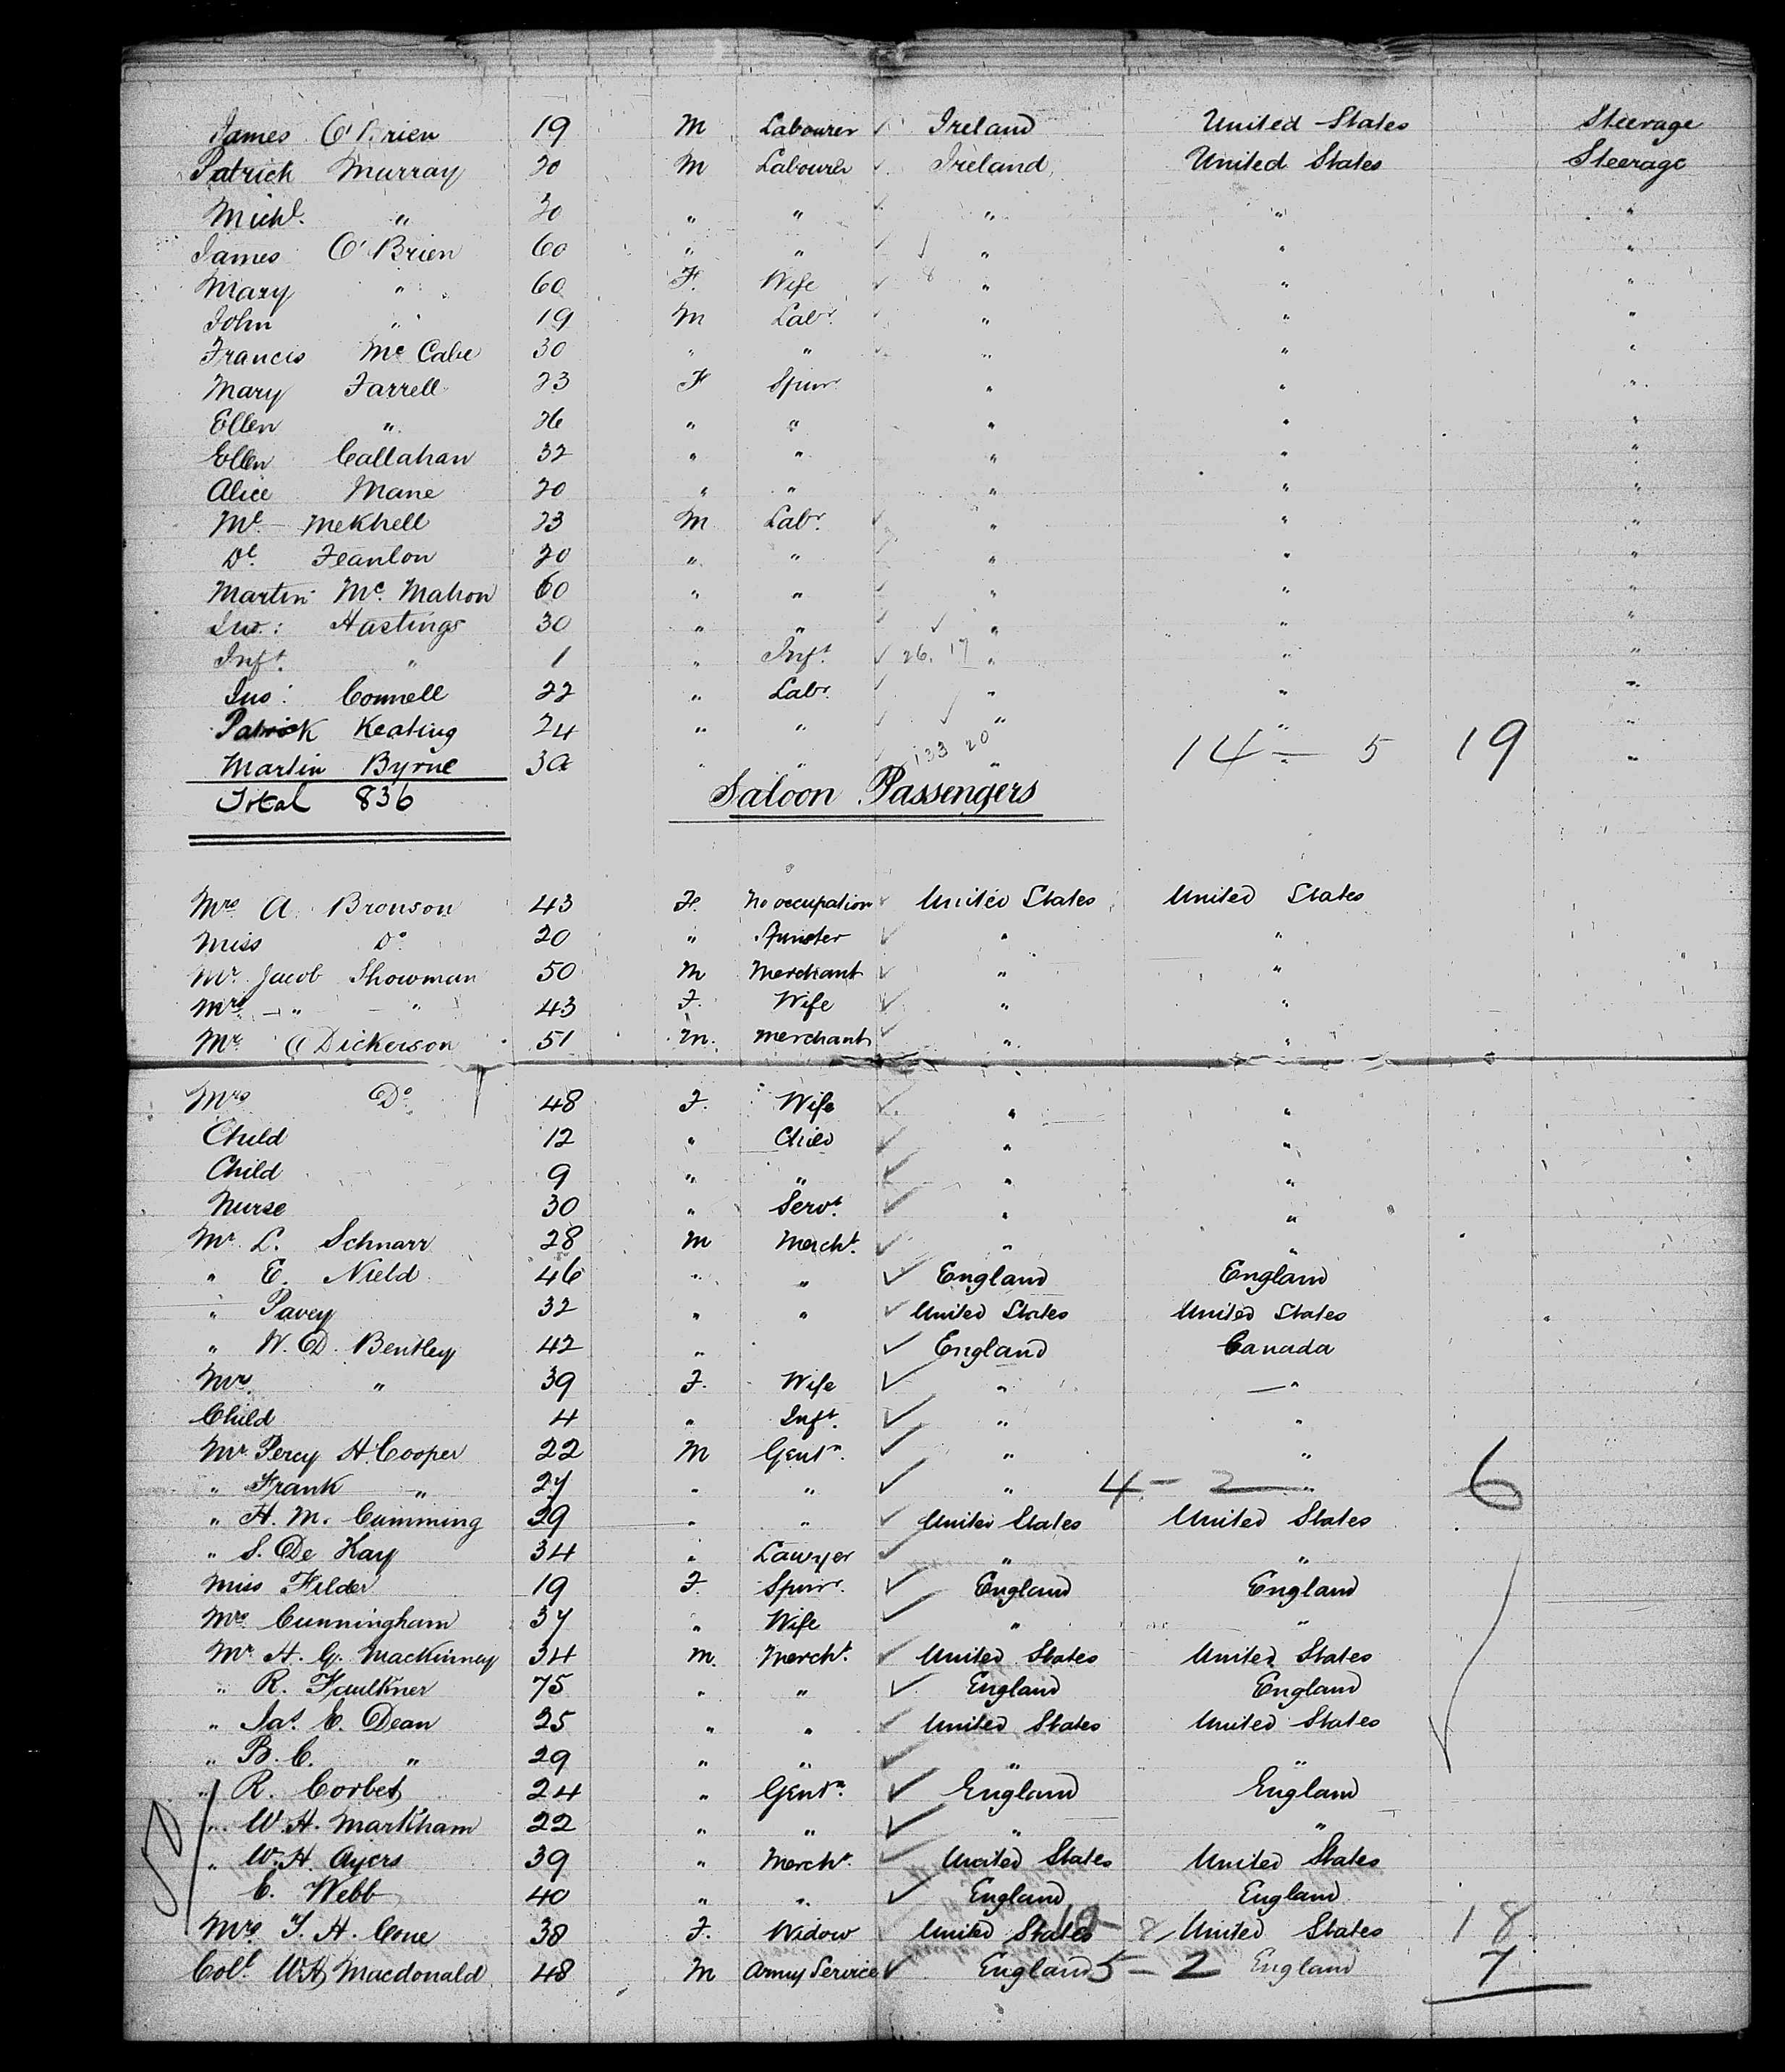 James O'Brien 19 M Labourer ✓ Ireland United States Steerage
Patrick Murray 20 M Labourer ✓ Ireland United States Steerage
Michl. " 30 " " ✓ " " "
James O'Brien 60 " " ✓ " " "
Mary " 60 F. Wife ✓ " " "
John " 19 M Labr. ✓ " " "
Francis Mc Cabe 30 " " ✓ " " "
Mary Farrell 23 F Spinr " " "
Ellen " 26 " " " " "
Ellen Callahan 32 " " " " "
Alice Mane 20 " " " " "
Ml. Mekhell 23 M Labr. ✓ " " "
Dl. Feanlon 20 " " ✓ " " "
Martin Mc. Mahon 60 " " ✓ " " "
Jno: Hastings 30 " " ✓ " " "
Inft. " 1 " Inft. ✓ 26. 17 " " "
Jno: Connell 22 " Labr. ✓ " " "
Patrick Keating 24 " " ✓ " " "
Martin Byrne 30 " " ✓ 133 20 " 14 — 5 19 "
Total 836
Saloon Passengers
Mrs A. Bronson 43 F. No occupation ✓ United States United States
Miss Do 20 " Spinster ✓ " "
Mr. Jacob Showman 50 M Merchant ✓ " "
Mrs — " — " 43 F. Wife ✓ " "
Mr. O Dickerson 51 M. Merchant ✓ " "
Mrs Do 48 F. Wife ✓ " "
Child 12 " Child ✓ " "
Child 9 " " ✓ " "
Nurse 30 " Servt. ✓ " "
Mr. L. Schnarr 28 M Mercht. ✓ " "
" E. Nield 46 " " ✓ England England
" Pavey 32 " " ✓ United States United States
" W. D. Bentley 42 " ✓ England Canada
Mrs. " 39 F. Wife ✓ " — "
Child 4 " Inft. ✓ " "
Mr. Percy H. Cooper 22 M Gentn. ✓ " "
" Frank " 27 " " ✓ " 4 - 2 " 6
" H. M. Cumming 29 " " ✓ United States United States
" S. De Kay 34 " Lawyer ✓ " "
Miss Filder 19 F. Spinr. ✓ England England
Mrs. Cunningham 37 " Wife ✓ " "
Mr. H. G. MacKinney 34 M. Mercht. ✓ United States United States
" R. Faulkner 75 " " ✓ England England
" Jas. E. Dean 25 " " ✓ United States United States
" B. C. " 29 " " ✓ " "
" R. Corbet 24 " Gentn. ✓ England England
" W. H. Markham 22 " " ✓ " "
" W. H. Ayers 39 " Mercht. ✓ United States United States
C. Webb 40 " " ✓ England England
Mrs. T. H. Cone 38 F. Widow United States 8 United States 18
Colt. W.H Macdonald 48 M Army Service ✓ England 5 - 2 England 7